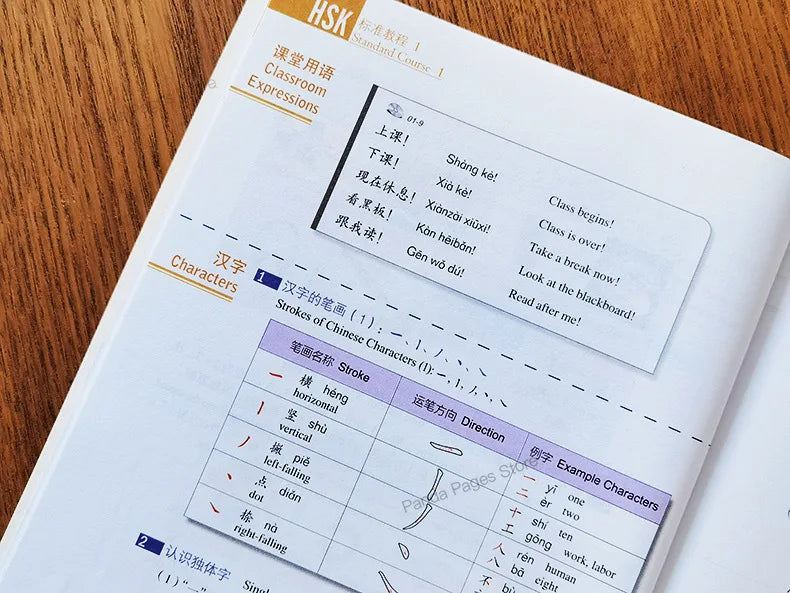 HSK 标准教程 1
Standard Course 1
课堂用语
Classroom
Expressions
01-9
上课! Shàng kè! Class begins!
下课! Xià kè! Class is over!
现在休息! Xiànzài xiūxi! Take a break now!
看黑板! Kàn hēibǎn! Look at the blackboard!
跟我读! Gēn wǒ dú! Read after me!
汉字
Characters
1 汉字的笔画(1):一、丨、丿、丶、㇏
Strokes of Chinese Characters (1):一、丨、丿、丶、㇏
笔画名称 Stroke 运笔方向 Direction 例字 Example Characters
一 横 héng
horizontal
一 yī one
二 èr two
丨 竖 shù
vertical
十 shí ten
工 gōng work, labor
丿 撇 piě
left-falling
人 rén human
八 bā eight
丶 点 diǎn
dot
不
㇏ 捺 nà
right-falling
Panda Pages Store
2 认识独体字
(1)“一”